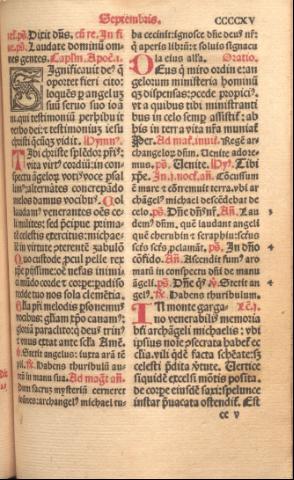 Septembris. CCCCXV
ps. Dixit dñs. cū re. In fi
ne. ps. Laudate dominū om-
nes gentes. Capl'm. Apoc. i.
Significauit de⁹ q̄
oportet fieri cito:
loquēs p angelum
suū seruo suo ioā
ni. qui testimoniū perhibuit
verbo dei: ⁊ testimoniū iesu
christi quecūq̨ vidit. Hymn⁹.
Tibi christe splēdor pr̄is
vita virt⁹ cordiū: in con-
spectu āgeloꝝ votis voce psal
lim⁹: alternātes concrepādo
melos damus vocibus. Col
laudam⁹ venerantes oēs ce
li milites: sed p̄cipue prima
tē celestis exercitus: michae-
lē in virtute ꝯterentē zabulō
Quo custode, procul pelle rex
xp̄e pissime: oē nefas inimici
mūdo corde ⁊ corpe: padiso
redde tuo nos sola clemētia.
Gloriā pr̄i melodis ꝑsonem⁹
vocibus: gl'iam xp̄o canam⁹:
gloriā paraclito: q̄ deus trin⁹
⁊ vnus extat ante secl'a. Amē.
℣. Stetit angelus: iuxta arā tē
pli. ℟. Habens thuribulū au-
reū in manu sua. Ad maḡt. añ.
Dum sacrū mysteriū cerneret
ioānes: archangel⁹ michael tu-
ba cecinit: ignosce dñe deus nr̄:
q̄ aperis librū: ⁊ soluis signacu
la eius all'a. Oratio.
Deus q̄ miro ordine: an-
gelorum ministeria hominū
q̨ dispensas: ꝯcede propici⁹.
vt a quibus tibi ministranti-
bus in celo semp assistit̄: ab
his in terra vita nr̄a muniat̄
Per. Ad mat. inuit. Regē ar-
changeloꝝ dñm. Uenite adore-
mus. ps. Uenite. Hy⁹. Tibi
xp̄e. In. j. noct. añ. Cōcussum
ē mare ⁊ cōtremuit terra. vbi ar
chāgel⁹ michael descēdebat de
celo. ps. Dñe dñs nr̄. Añ. Lau
dem⁹ dñm, quē laudant angeli
quē cherubin ⁊ seraphin: scūs
scūs scūs ꝓclamāt. ps. In dño
cōfido. Añ. Ascendit fum⁹ aro
matū in conspectu dñi de manu
āgeli. ps. Dñe q̄s. ℣. Stetit an
gel⁹. ℟. Habens thuribulum.
In monte garga- Lc̄. j.
no venerabil' memoria
bt̄i archāgeli michaelis: vbi
ipsius noīe ꝯsecrata habet̄ ec
clīa. vili qdē facta schēate: sȝ
celesti p̄dita v̄tute. Uertice
siquidē excelsi mōtis posita
de corpe eiusdē saxi: spelunce
instar p̄uacata ostendit̄. Est
cc v